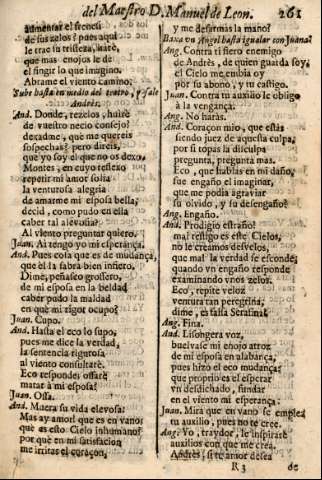 del Maestro D. Manuel de Leon. 261
aumentar el frenesi
de sus zelos? pues aqui
le trae la tristeza, harè,
que mas enojos le dè
el fingir lo que imagino:
Abrame el viento camino.
Sube hasta en medio del teatro, y sale
Andrès.
And. Donde, rezelos, huirè
de vuestro necio consejo?
dexadme, que me quereis
sospechas? pero direis,
que yo soy el que no os dexo,
Montes, en cuyo reflexo
repetir mi amor solia
la venturosa alegria
de amarme mi esposa bella,
decid, como pudo en ella
caber tal alevosia?
Al viento preguntar quiero.
Juan. Ai tengo yo mi esperança.
And. Pues cosa que es de mudança,
que èl la sabrà bien infiero.
Dime, peñasco grossero,
de mi esposa en la beldad
caber pudo la maldad
en que mi rigor ocupo?
Juan. Cupo.
And. Hasta el eco lo supo,
pues me dice la verdad,
la sentencia rigurosa
al viento consultarè.
Eco responde: ossarè
matar à mi esposa?
Juan. Ossa.
And. Muera su vida alevosa:
Mas ay amor! que es en vano:
què es esto Cielo inhumano?
por què en mi satisfacion
me irritas el coraçon,
y me desarmas la mano?
Baxa un Angel hasta igualar con Juana?
Ang. Contra ti fiero enemigo
de Andrès, de quien guarda soy,
el Cielo me embia oy
por su abono, y tu castigo.
Juan. Contra tu auxilio le obligo
à la vengança.
Ang. No haràs.
And. Coraçon mio, que estàs
siendo juez de aquesta culpa,
por si topas la disculpa
pregunta, pregunta mas.
Eco, que hablas en mi daño,
fue engaño el imaginar,
que me podia agraviar
su olvido, y su desengaño?
Ang. Engaño.
And. Prodigio estraño!
mal testigo es este Cielos,
no le creamos desvelos,
que mal la verdad se esconde;
quando vn engaño responde
examinando vnos zelos.
Eco, repite veloz
ventura tan peregrina,
dime, es falsa Serafina?
Ang. Fina.
And. Lisongera voz,
buelvase mi enojo atroz
de mi esposa en alabança,
pues hizo el eco mudança;
que proprio es el esperar
vn desdichado, fundar
en el viento mi esperança.
Juan. Mira que en vano se emplea
tu auxilio, pues no te cree.
Ang. Yo, traydor, le inspirarè
auxilios con que me crea.
Andrès, si tu amor desea
R 3 de